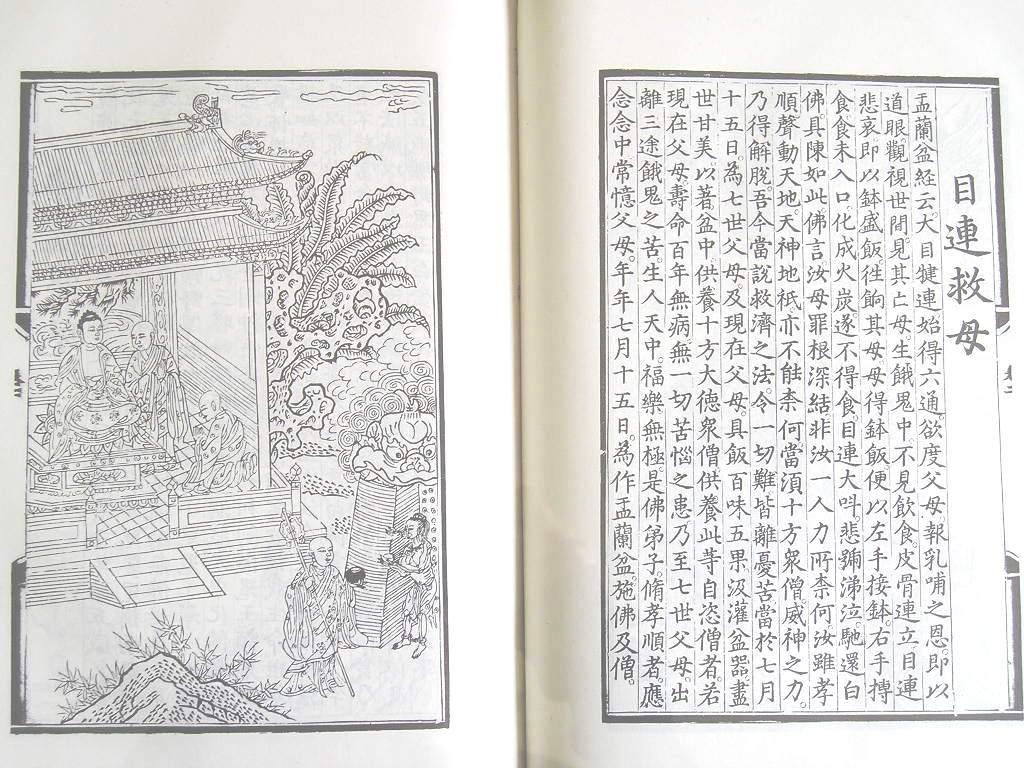 目連救母
盂蘭盆經云。大目犍連始得六通。欲度父母。報乳哺之恩。即以
道眼。觀視世間。見其亡母。生餓鬼中。不見飲食。皮骨連立。目連
悲哀。即以鉢盛飯。徃餉其母。母得鉢飯。便以左手接鉢。右手摶
食。食未入口。化成火炭。遂不得食。目連大呌。悲號涕泣。馳還白
佛。具陳如此。佛言汝母罪根深結。非汝一人力所柰何。汝雖孝
順。聲動天地。天神地祇。亦不能柰何。當湏十方衆僧威神之力。
乃得解脫。吾今當說救濟之法。令一切難皆離憂苦。當於七月
十五日。為七世父母。及現在父母。具飯百味五果。汲灌盆器。盡
世甘美。以著盆中。供養十方大德衆僧。供養此等自恣僧者。若
現在父母。壽命百年無病。無一切苦惱之患。乃至七世父母。出
離三途餓鬼之苦。生人天中。福樂無極。是佛弟子。脩孝順者。應
念念中常憶父母。年年七月十五日。為作盂蘭盆。施佛及僧。